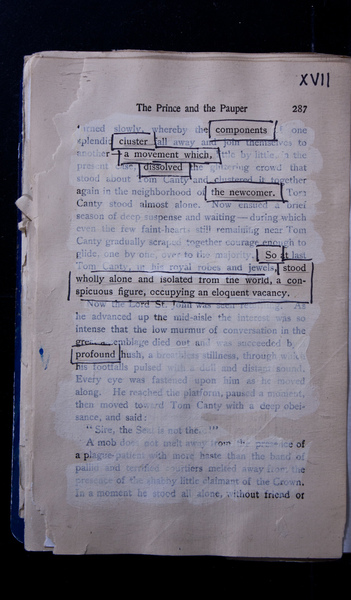 XVII
The Prince and the Pauper 287
turned slowly, whereby the components of one
splendid cluster fall away and join themselves to
another—a movement which, little by little, in the
present case, dissolved the glittering crowd that
stood about Tom Canty and clustered it together
again in the neighborhood of the newcomer. Tom
Canty stood almost alone. Now ensued a brief
season of deep suspense and waiting—during which
even the few faint-hearts still remaining near Tom
Canty gradually scraped together courage enough to
glide, one by one, over to the majority. So at last
Tom Canty, in his royal robes and jewels, stood
wholly alone and isolated from the world, a con-
spicuous figure, occupying an eloquent vacancy.
Now the Lord St. John was seen As
he advanced up the mid-aisle the interest was so
intense that the low murmur of conversation in the
great assemblage died out and was succeeded by a
profound hush, a breathless stillness, through which
his footfalls pulsed with a dull and distant sound.
Every eye was fastened upon him as he moved
along. He reached the platform, paused a moment,
then moved toward Tom Canty with a deep obei-
sance, and said:
"Sire, the Seal is not there!"
A mob does not melt away from the presence of
a plague-patient with more haste than the band of
pallid and terrified courtiers melted away from the
presence of the shabby little claimant of the Crown.
In a moment he stood all alone, without friend or